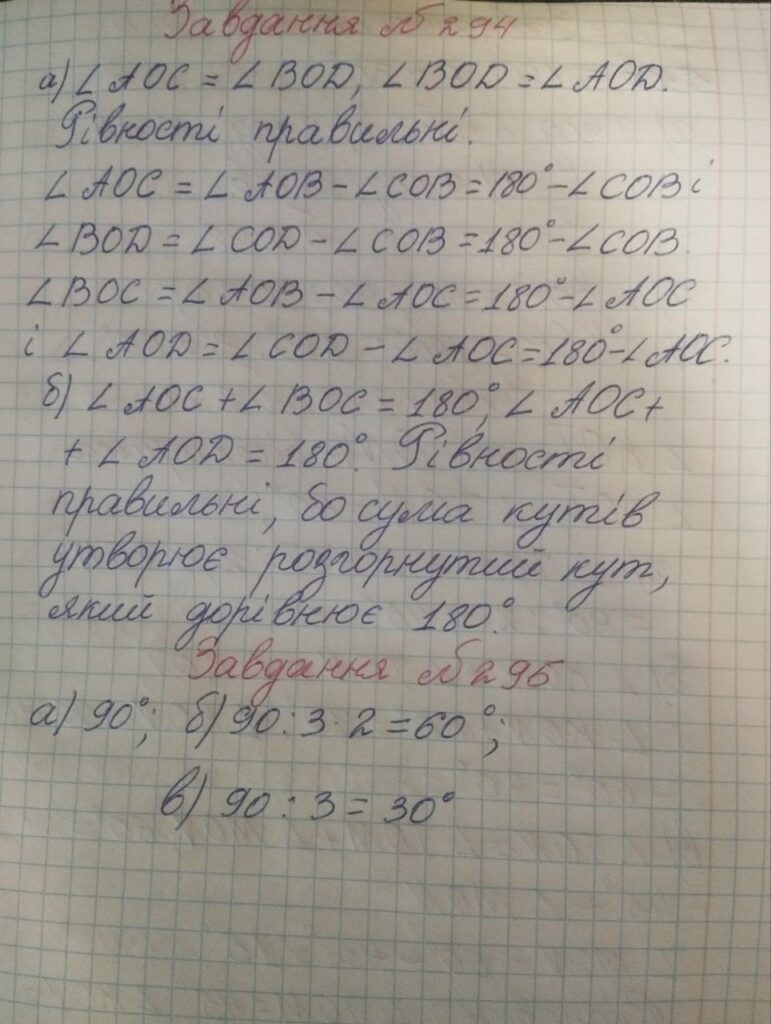 Завдання № 294
а) ∠ AOC = ∠ BOD, ∠ BOD = ∠ AOD.
Рівності правильні.
∠ AOC = ∠ AOB - ∠ COB = 180° - ∠ COB і
∠ BOD = ∠ COD - ∠ COB = 180° - ∠ COB.
∠ BOC = ∠ AOB - ∠ AOC = 180° - ∠ AOC
і ∠ AOD = ∠ COD - ∠ AOC = 180° - ∠ AOC.
б) ∠ AOC + ∠ BOC = 180°, ∠ AOC +
+ ∠ AOD = 180°. Рівності
правильні, бо сума кутів
утворює розгорнутий кут,
який дорівнює 180°.
Завдання № 295
а) 90°; б) 90 : 3 · 2 = 60°;
в) 90 : 3 = 30°